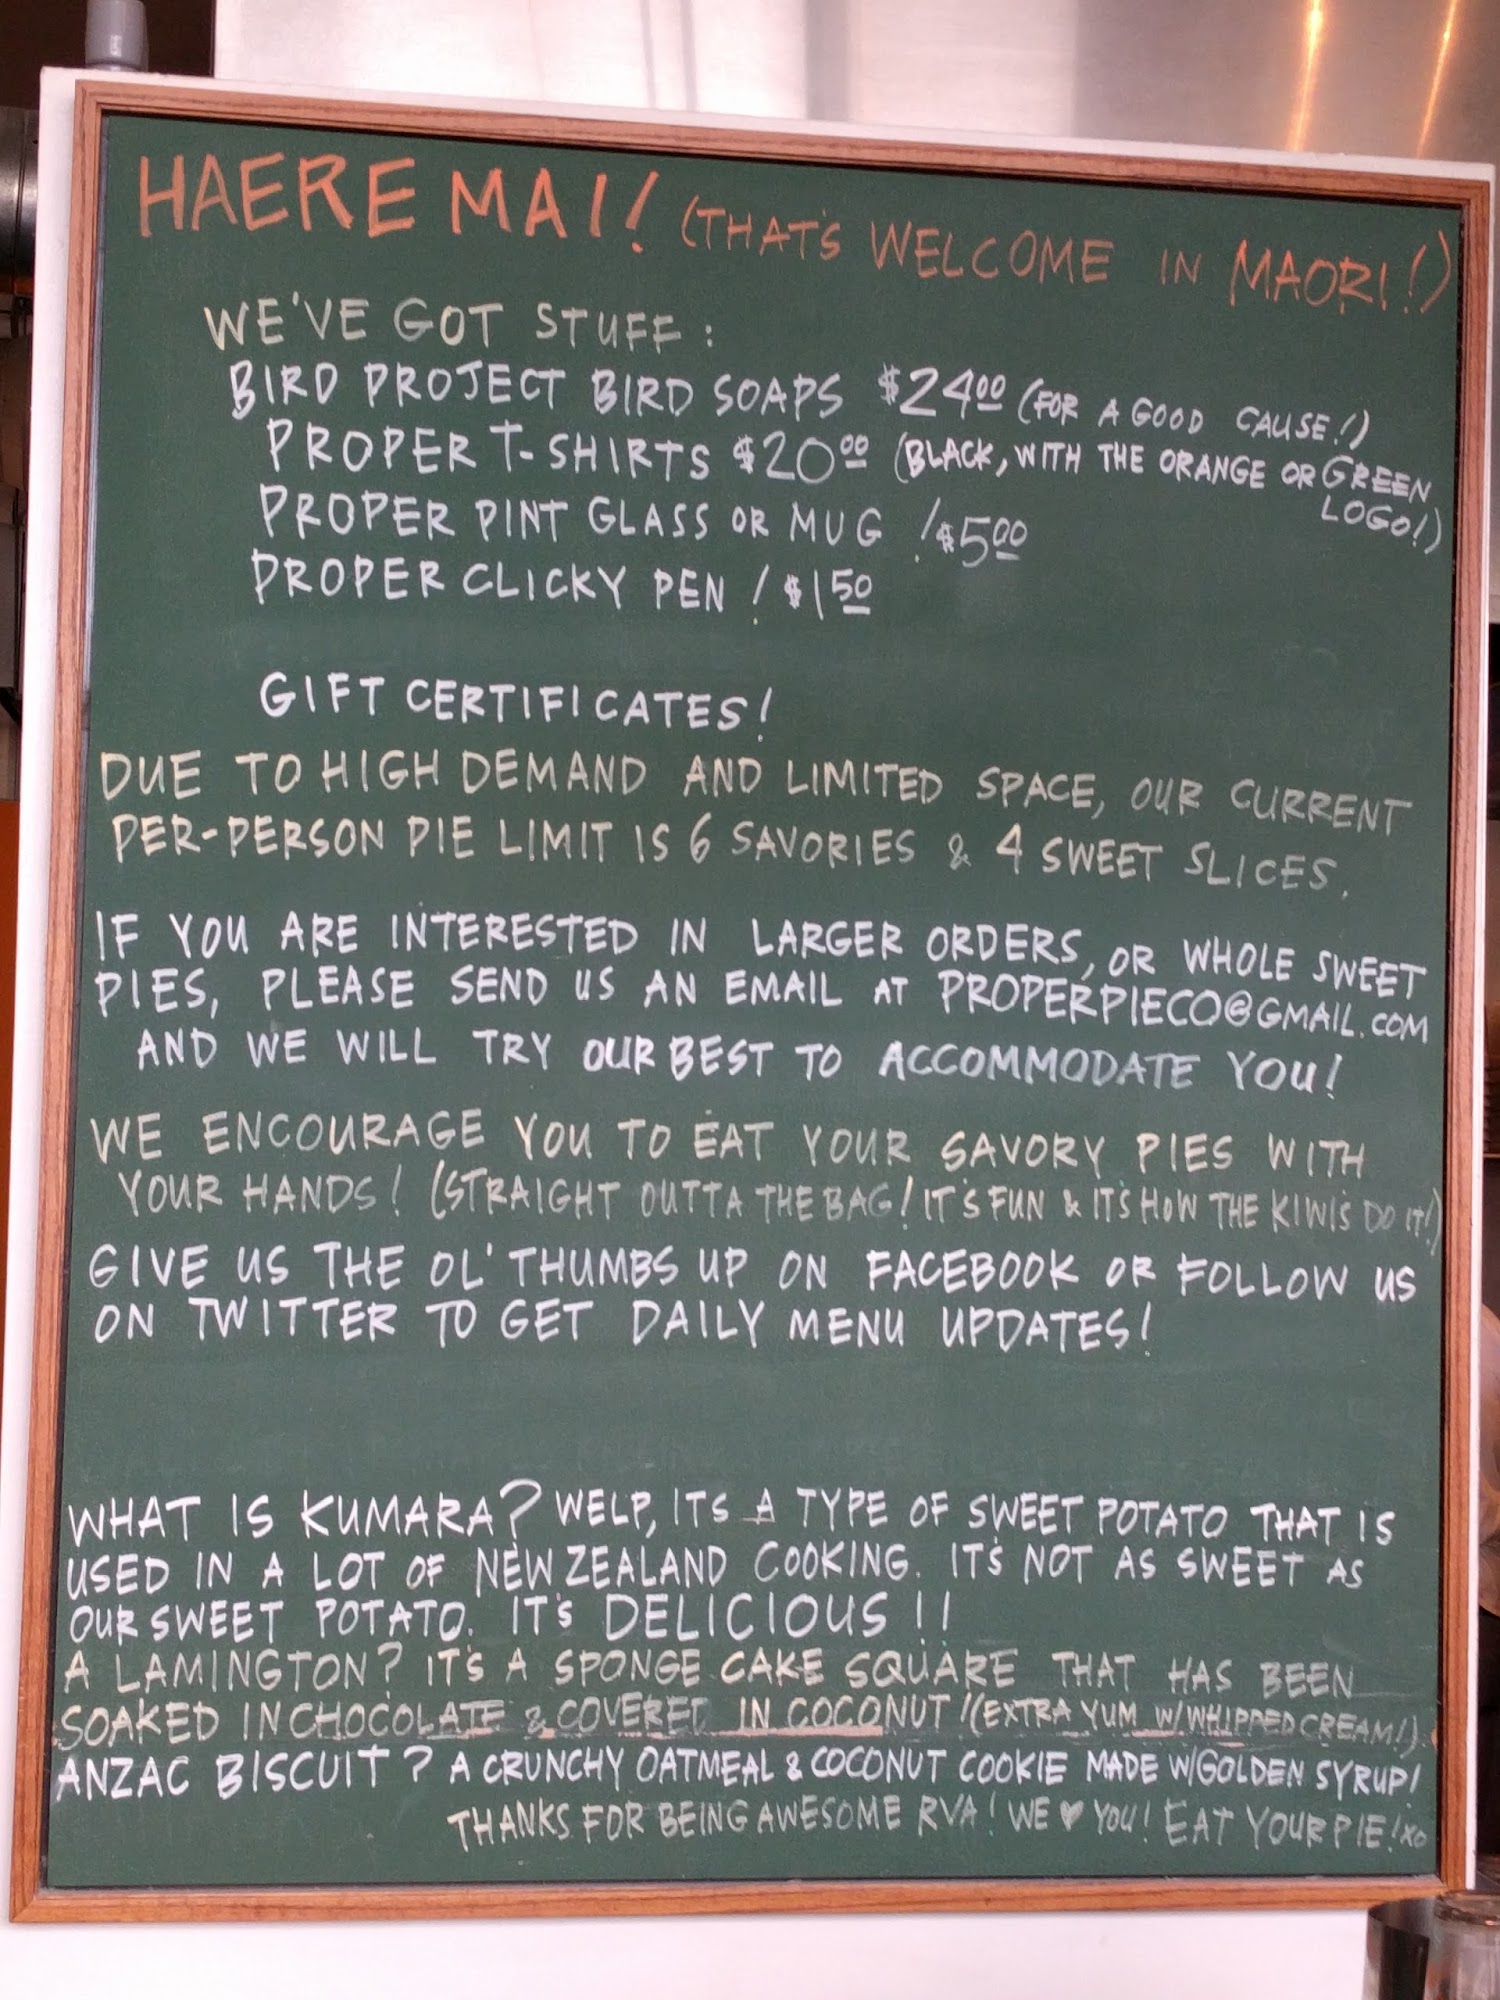 HAERE MAI! (THAT'S WELCOME IN MAORI!)
WE'VE GOT STUFF:
BIRD PROJECT BIRD SOAPS $24.00 (FOR A GOOD CAUSE!)
PROPER T-SHIRTS $20.00 (BLACK, WITH THE ORANGE OR GREEN
LOGO!)
PROPER PINT GLASS OR MUG! $5.00
PROPER CLICKY PEN! $1.50
GIFT CERTIFICATES!
DUE TO HIGH DEMAND AND LIMITED SPACE, OUR CURRENT
PER-PERSON PIE LIMIT IS 6 SAVORIES & 4 SWEET SLICES.
IF YOU ARE INTERESTED IN LARGER ORDERS, OR WHOLE SWEET
PIES, PLEASE SEND US AN EMAIL AT PROPERPIECO@GMAIL.COM
AND WE WILL TRY OUR BEST TO ACCOMMODATE YOU!
WE ENCOURAGE YOU TO EAT YOUR SAVORY PIES WITH
YOUR HANDS! (STRAIGHT OUTTA THE BAG! IT'S FUN & IT'S HOW THE KIWI'S DO IT!)
GIVE US THE OL' THUMBS UP ON FACEBOOK OR FOLLOW US
ON TWITTER TO GET DAILY MENU UPDATES!
WHAT IS KUMARA? WELP, IT'S A TYPE OF SWEET POTATO THAT IS
USED IN A LOT OF NEW ZEALAND COOKING. IT'S NOT AS SWEET AS
OUR SWEET POTATO. IT'S DELICIOUS!!
A LAMINGTON? IT'S A SPONGE CAKE SQUARE THAT HAS BEEN
SOAKED IN CHOCOLATE & COVERED IN COCONUT! (EXTRA YUM W/WHIPPED CREAM!)
ANZAC BISCUIT? A CRUNCHY OATMEAL & COCONUT COOKIE MADE W/GOLDEN SYRUP!
THANKS FOR BEING AWESOME RVA! WE ♥ YOU! EAT YOUR PIE! XO